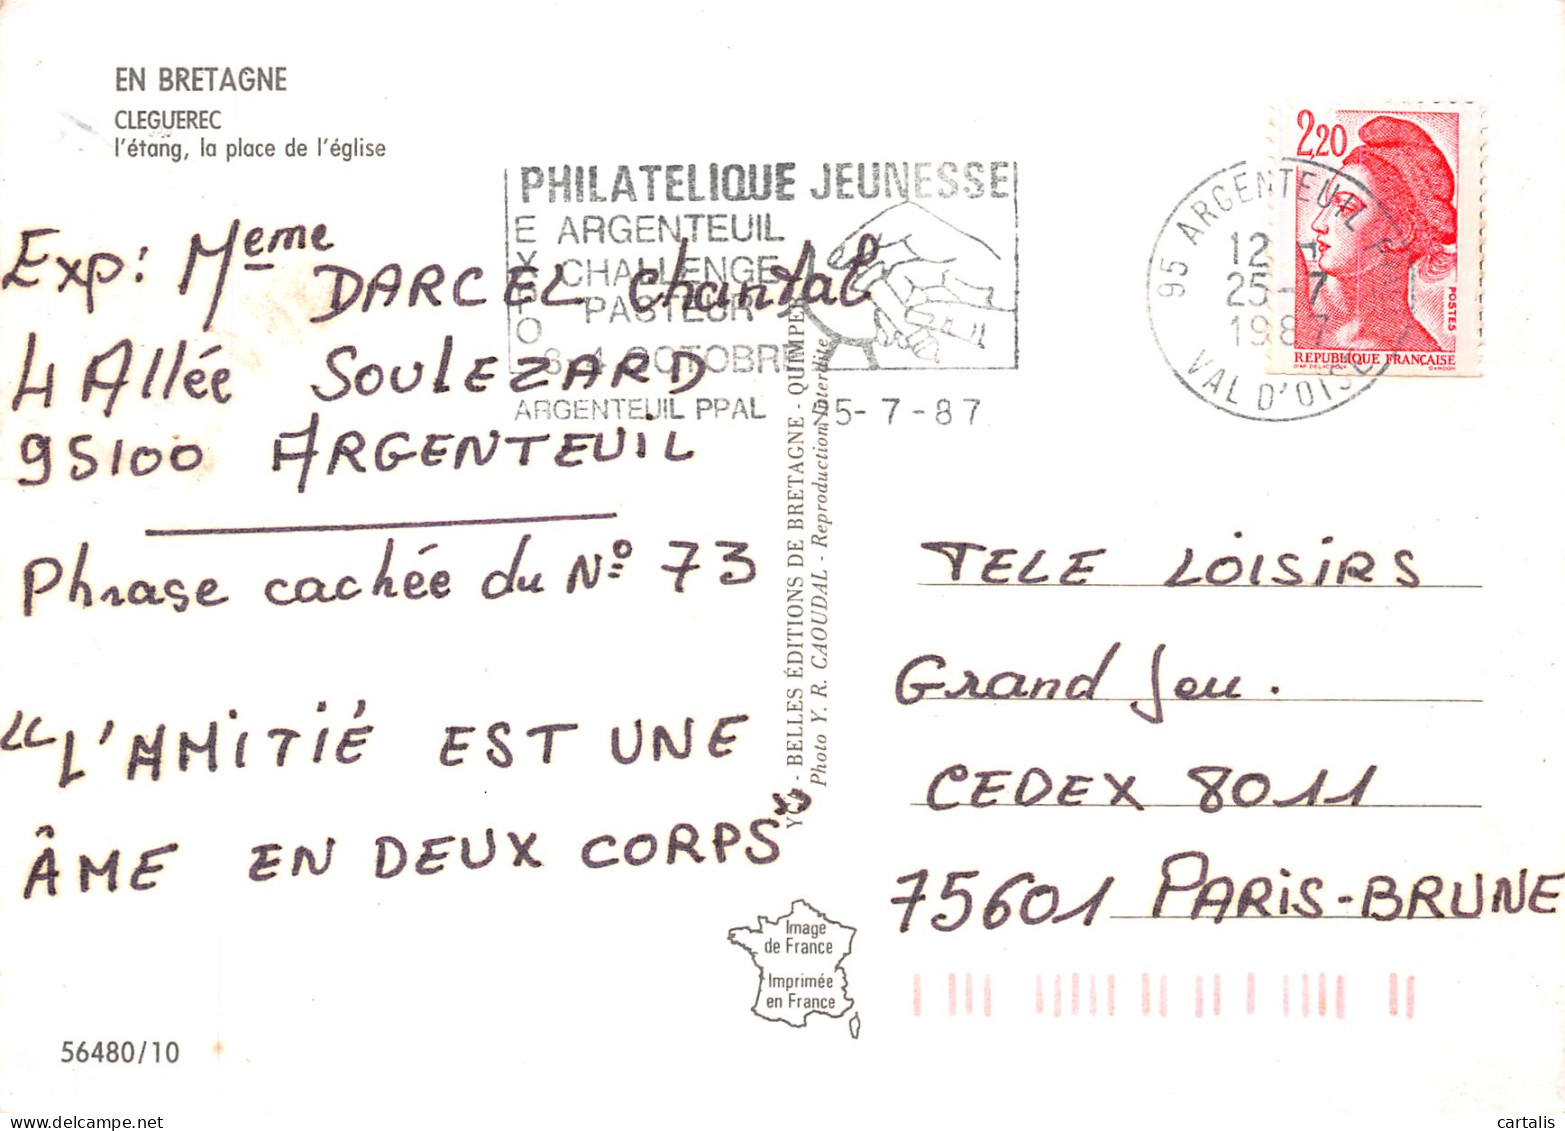 EN BRETAGNE
CLEGUEREC
l'étang, la place de l'église
PHILATELIQUE JEUNESSE
EXPO
ARGENTEUIL
CHALLENGE
PASTEUR
3-4 OCTOBRE
ARGENTEUIL PPAL 25-7-87
95 ARGENTEUIL
12 H
25-7
1987
VAL D'OISE
2,20
POSTES
REPUBLIQUE FRANÇAISE
D'AP. DELACROIX GANDON
Exp: Meme DARCEL Chantal
4 Allée SOULEZARD
95100 ARGENTEUIL
Phrase cachée du N° 73
"L'AMITIÉ EST UNE
ÂME EN DEUX CORPS"
- BELLES ÉDITIONS DE BRETAGNE - QUIMPER
Photo Y. R. CAOUDAL - Reproduction Interdite
TELE LOISIRS
Grand Jeu.
CEDEX 8011
75601 PARIS-BRUNE
Image
de France
Imprimée
en France
56480/10
cartalis